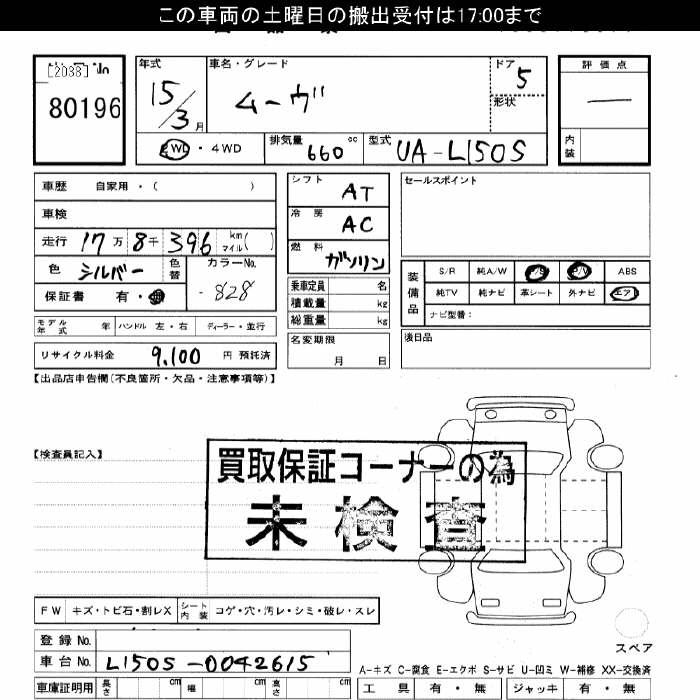 この車両の土曜日の搬出受付は17:00まで
[2038]
80196
年式
15/3月
車名・グレード
ムーヴ
ドア
5
形状
評価点
内装
2WD・4WD
排気量 660 cc
型式 UA-L150S
車歴 自家用・( )
車検
走行 17万8千396 km マイル( )
色 シルバー
色替
カラーNo.
828
保証書 有・
モデル年式 年 ハンドル 左・右 ディーラー・並行
リサイクル料金 9,100 円 預託済
シフト AT
冷房 AC
燃料 ガソリン
乗車定員 名
積載量 kg
総重量 kg
名変期限
月 日
セールスポイント
装備品
S/R 純A/W P/S P/W ABS
純TV 純ナビ 革シート 外ナビ エアB
ナビ型番:
後日品
【出品店申告欄(不良箇所・欠品・注意事項等)】
【検査員記入】
買取保証コーナーの為
未検査
FW キズ・トビ石・割レX
シート内装 コゲ・穴・汚レ・シミ・破レ・スレ
登録No.
車台No. L150S-0042615
スペア
A-キズ C-腐食 E-エクボ S-サビ U-凹ミ W-補修 XX-交換済
車庫証明用 長さ cm 幅 cm 高さ cm
工具 有・無 ジャッキ 有・無